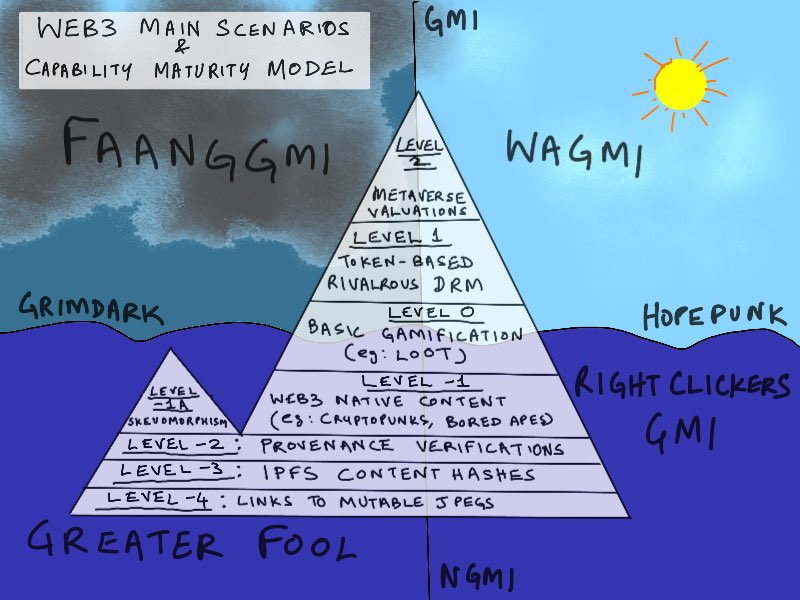 WEB3 MAIN SCENARIOS
&
CAPABILITY MATURITY MODEL
GMI
FAANGGMI
WAGMI
LEVEL
2
METAVERSE
VALUATIONS
LEVEL 1
TOKEN-BASED
RIVALROUS DRM
GRIMDARK
HOPEPUNK
LEVEL 0
BASIC GAMIFICATION
(eg: LOOT)
LEVEL -1
WEB3 NATIVE CONTENT
(eg: CRYPTOPUNKS, BORED APES)
RIGHT CLICKERS
GMI
LEVEL
-1A
SKEUOMORPHISM
LEVEL -2: PROVENANCE VERIFICATIONS
LEVEL -3: IPFS CONTENT HASHES
LEVEL -4: LINKS TO MUTABLE JPEGS
GREATER FOOL
NGMI